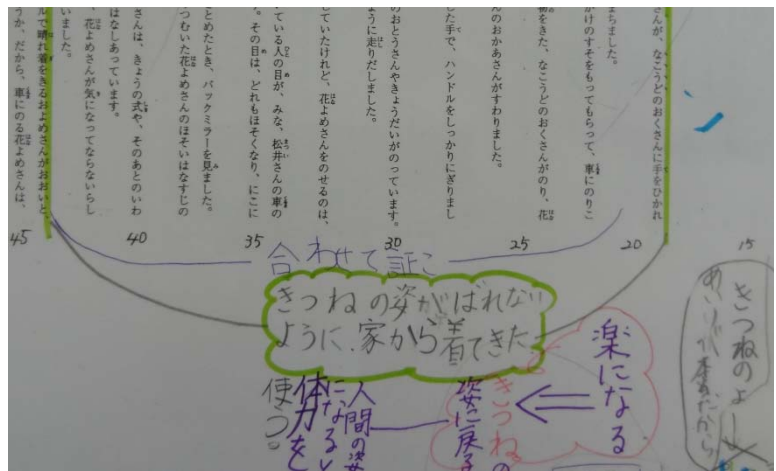 さんが、なこうどのおくさんに手をひかれ
まちました。
がけのすそをもってもらって、車にのりこ
物をきた、なこうどのおくさんがのり、花
んのおかあさんがすわりました。
した手で、ハンドルをしっかりにぎりまし
のおとうさんやきょうだいがのっています。
ように走りだしました。
していたけれど、花よめさんをのせるのは、
ている人の目が、みな、松井さんの車の
。その目は、どれもほそくなり、にこに
とめたとき、バックミラーを見ました。
つむいた花よめさんのほそいはなすじの
さんは、きょうの式や、そのあとのいわ
はなしあっています。
、花よめさんが気になってならないらし
いました。
ルで晴れ着をきるおよめさんがおおいと、
うか、だから、車にのる花よめさんは、
15
20
25
30
35
40
45
合わせて証こ
きつねの姿がばれない
ように、家から着てきた
きつねのよ
だから
楽になる
きつねの
姿に戻る
人間の姿
になる
体力を
使う。